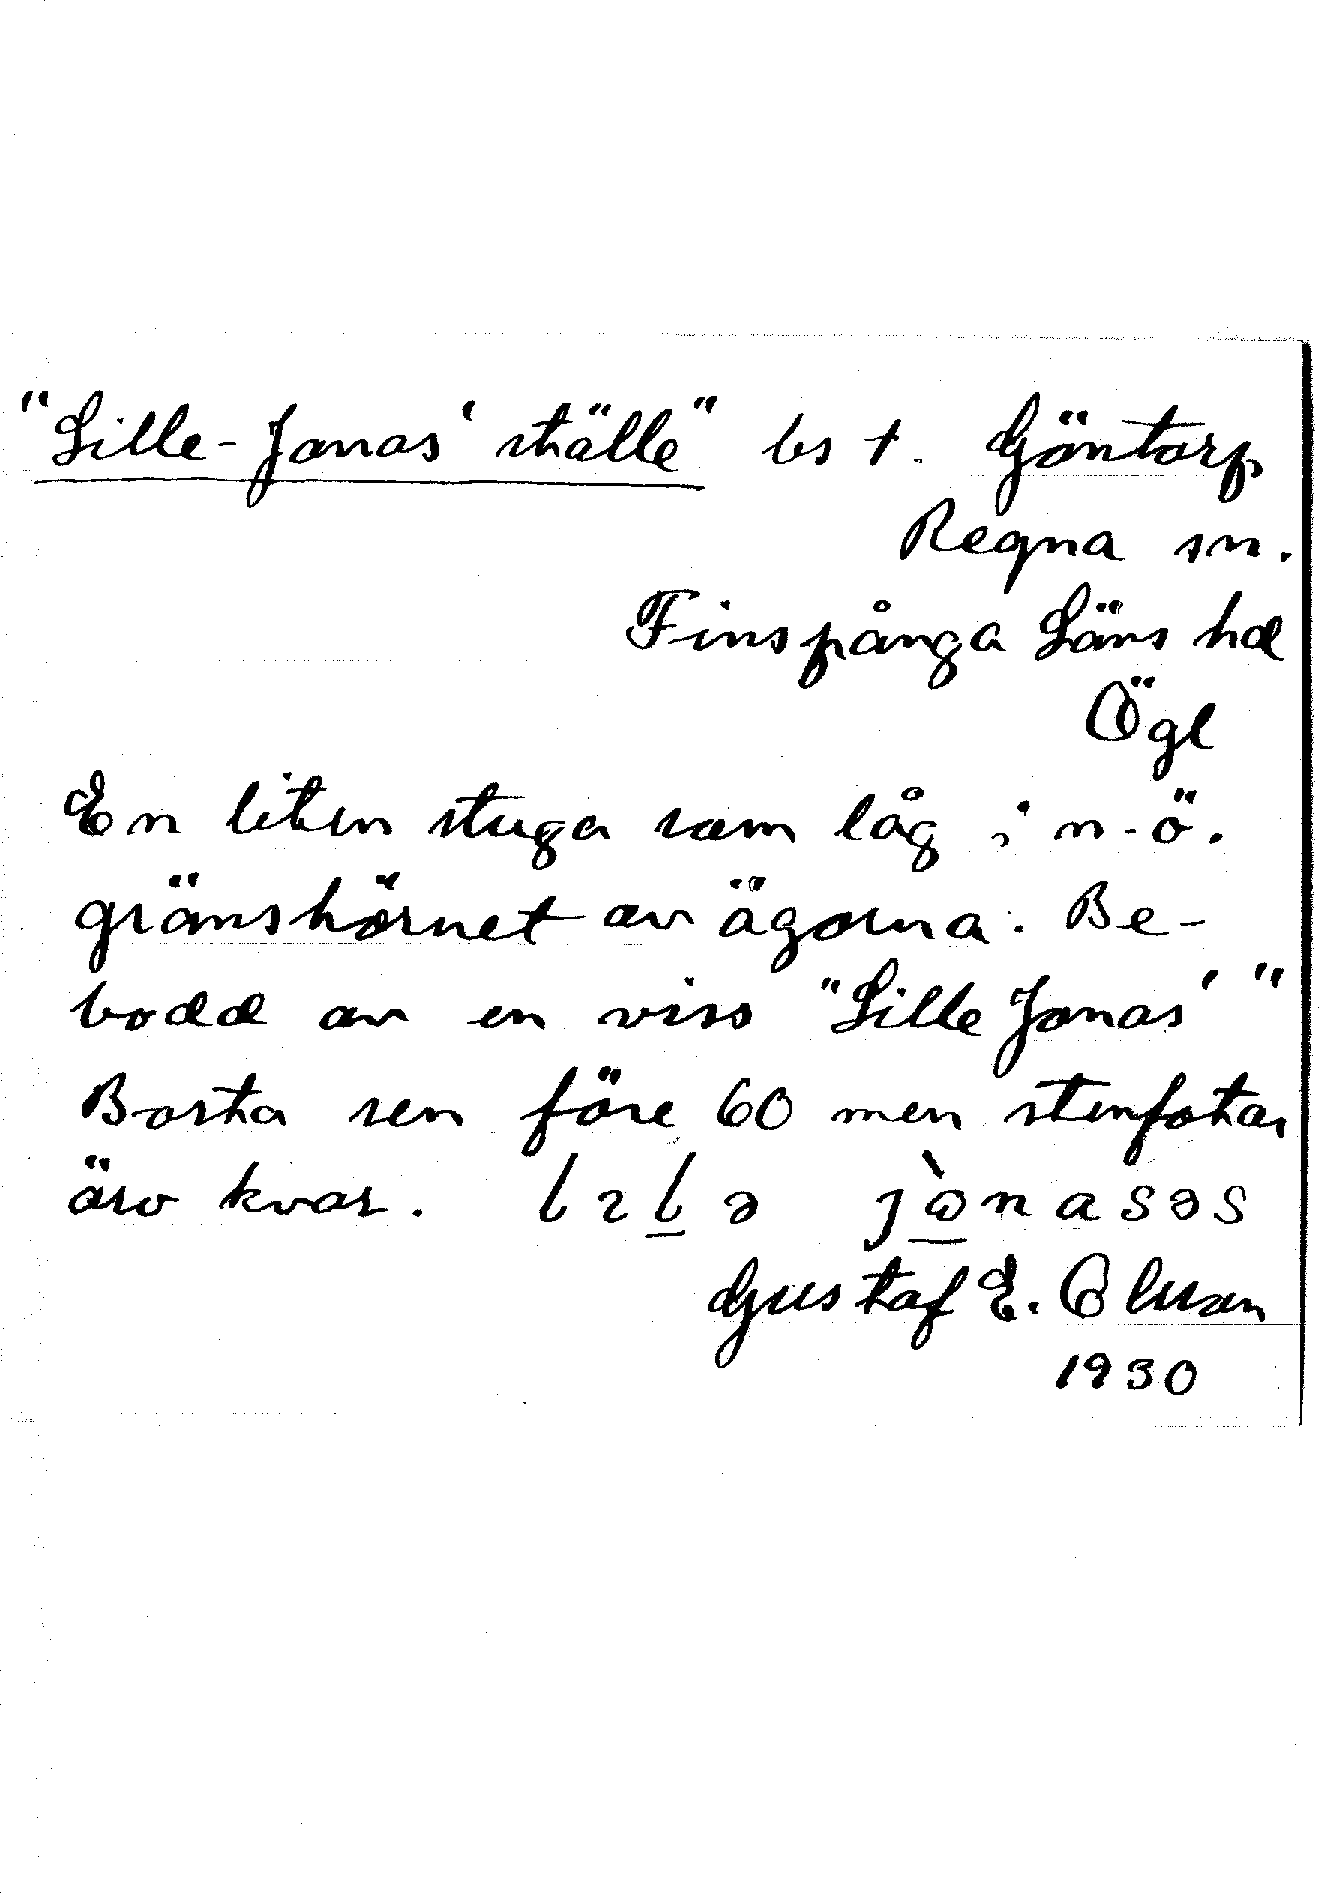 "Lille-Jonas' ställe" bs t. Göntorp
Regna sn.
Finspånga Läns hd
Ögl
En liten stuga som låg i n-ö.
gränshörnet av ägorna. Be-
bodd av en viss "Lille Jonas'"
Borta sen före 60 men stenfotar
äro kvar. lɩlə jònasəs
Gustaf E. Olsson
1930